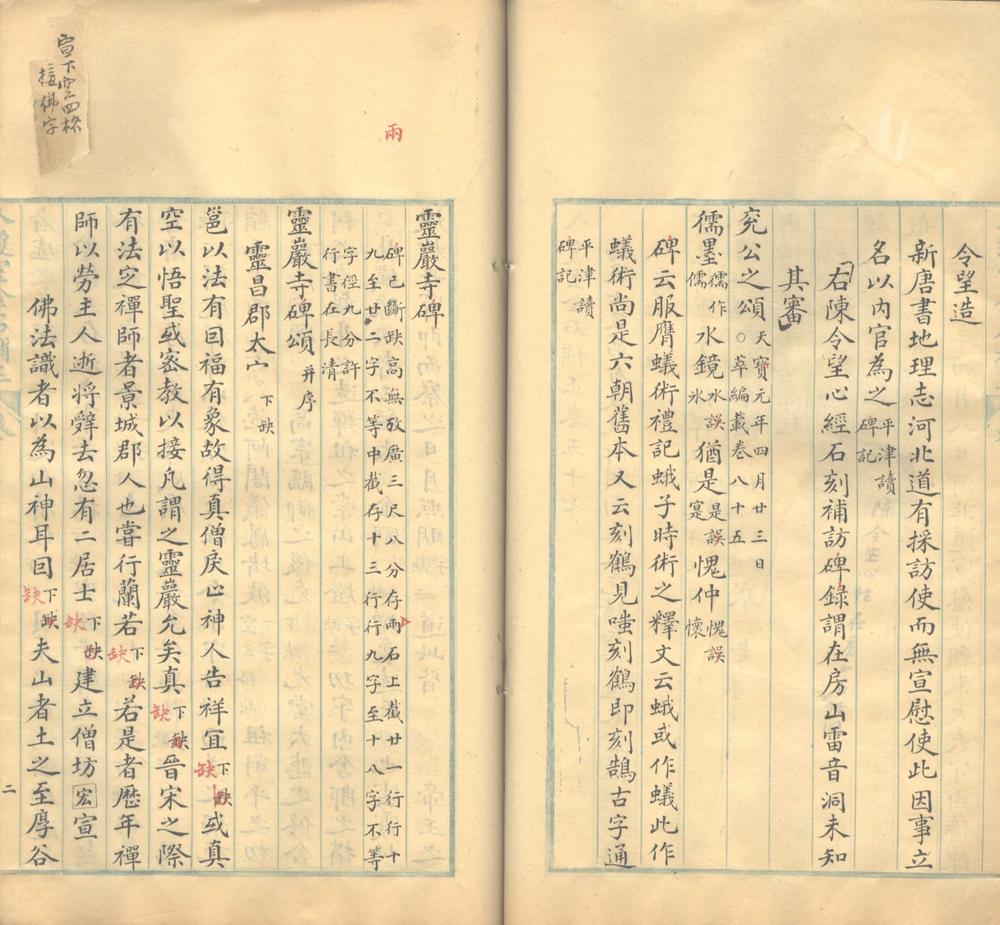 令望造
新唐書地理志河北道有採訪使而無宣慰使此因事立
名以内官為之平津讀碑記
右陳令望心經石刻補訪碑錄謂在房山雷音洞未知
其審
兖公之頌天寶元年四月廿三日○萃編載卷八十五
儒墨儒作儒水鏡水誤氷猶是是誤寔愧仲愧誤懷
碑云服膺蟻術禮記蛾子時術之釋文云蛾或作蟻此作
蟻術尚是六朝舊本又云刻鶴見嗤刻鶴即刻鵠古字通
平津讀碑記
靈巖寺碑
碑已斷缺高無攷廣三尺八分存兩石上截廿一行行十
九至廿二字不等中截存十三行行九字至十八字不等
字徑九分許
行書在長清
靈巖寺碑頌并序
靈昌郡太守下缺
邕以法有因福有象故得真僧戾止神人告祥宜下缺缺或真
空以悟聖或密教以接凡謂之靈巖允矣真下缺缺晉宋之際
有法定禪師者景城郡人也嘗行蘭若下缺缺若是者歷年禪
師以勞主人逝將辭去忽有二居士下缺缺建立僧坊宏宣
佛法識者以為山神耳曰下缺缺夫山者土之至厚谷
二
兩
宣下空四格
接佛字